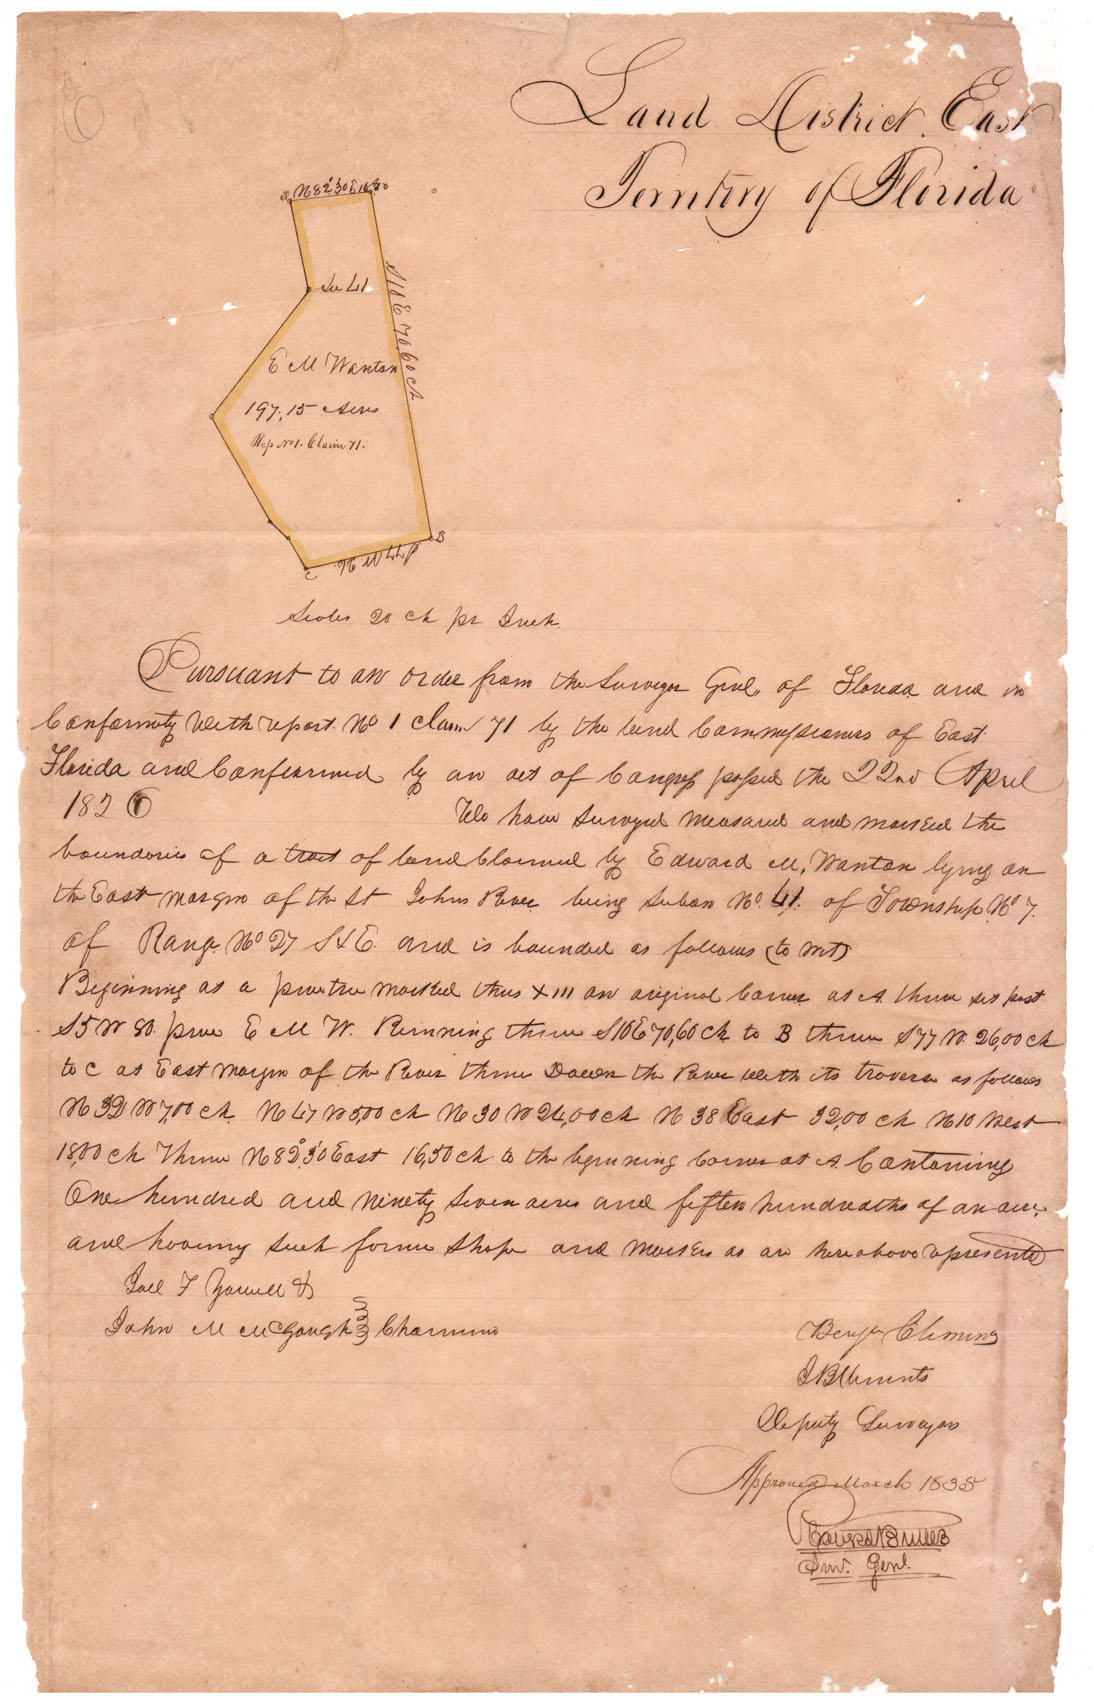 Land District East
Territory of Florida
N82°30'E 16,50
Sec 41
S10E 70,60 ch
E M Wanton
197,15 Acres
Rep No 1. Claim 71.
S77 W 26.
B
C
Scales 20 ch pr Inch
Pursuant to an order from the Surveyor Genl. of Florida and in
Conformity with report No 1 claim 71 by the land Commissioners of East
Florida and Confirmed by an act of Congress passed the 22nd April
1826 We have Surveyed measured and marked the
boundaries of a tract of land Claimed by Edward M, Wanton lying on
the East margin of the St Johns River being Section No. 41. of Township No 7.
of Range No 27 S & E. and is bounded as follows (to wit)
Beginning at a pine tree marked thus X III an original Corner at A. thence set post
S5W 80. pine E M W. Running thence S10E 70,60 ch to B thence S77 W. 26,00 ch
to C at East margin of the River thence Down the River with its traverse as follows
N 32 W 7,00 ch. N 47 W 5,00 ch N 30 W 24,00 ch N 38 East 32,00 ch N10 West
18,00 ch Thence N82°,30' East 16,50 ch to the beginning Corner at A. Containing
One hundred and Ninety Seven acres and fifteen hundredths of an acre,
and having such form shape and marks as are here above represented
F &
John M McGough Chainmen
Benjn Clements
J B Clements
Deputy Surveyors
Approved March 1835
Robert Butler
Surv. Genl.